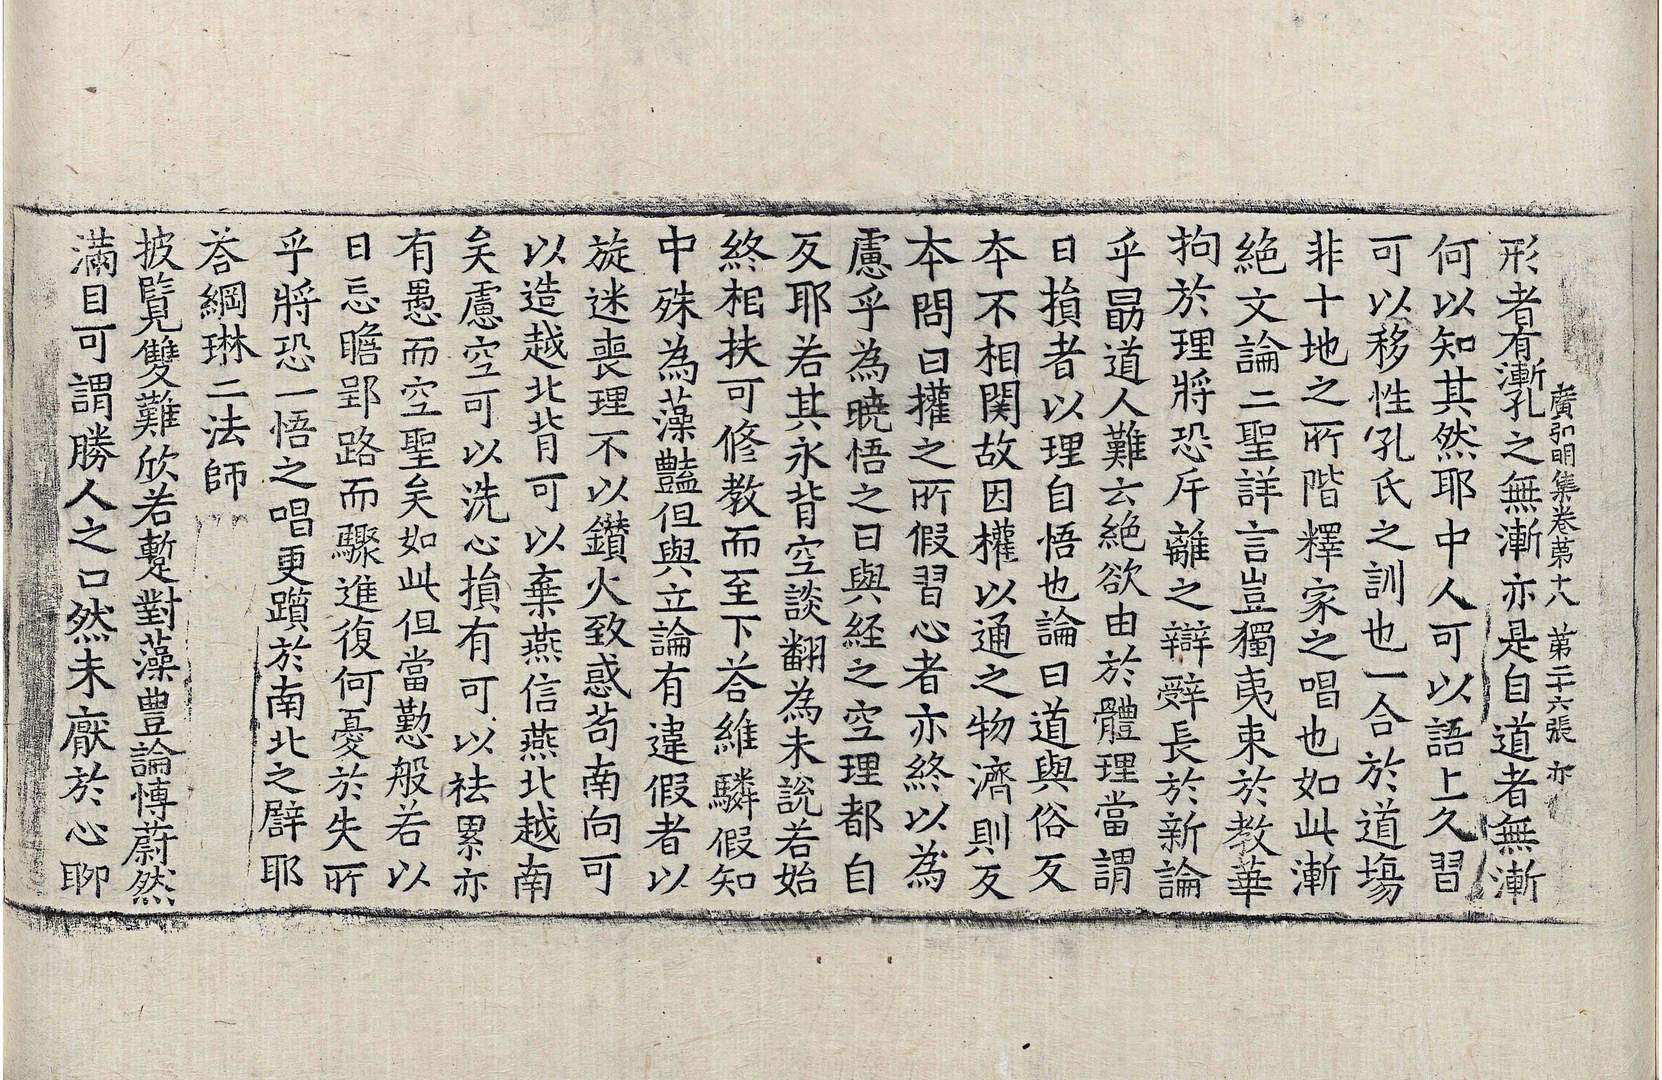 廣弘明集卷第十八 第二十六張 亦
形者有漸孔之無漸亦是自道者無漸
何以知其然耶中人可以語上久習
可以移性孔氏之訓也一合於道場
非十地之所階釋家之唱也如此漸
絕文論二聖詳言豈獨夷束於教華
拘於理將恐斥離之辯辭長於新論
乎勗道人難云絕欲由於體理當謂
日損者以理自悟也論曰道與俗反
本不相關故因權以通之物濟則反
本問曰權之所假習心者亦終以為
慮乎為曉悟之日與經之空理都自
反耶若其永背空談翻為未說若始
終相扶可修教而至下荅維驎假知
中殊為藻豔但與立論有違假者以
旋迷喪理不以鑽火致惑苟南向可
以造越北背可以棄燕信燕北越南
矣慮空可以洗心損有可以袪累亦
有愚而空聖矣如此但當勤般若以
日忘瞻郢路而驟進復何憂於失所
乎將恐一悟之唱更躓於南北之譬耶
荅綱琳二法師
披覽雙難欣若蹔對藻豊論博蔚然
滿目可謂勝人之口然未厭於心聊